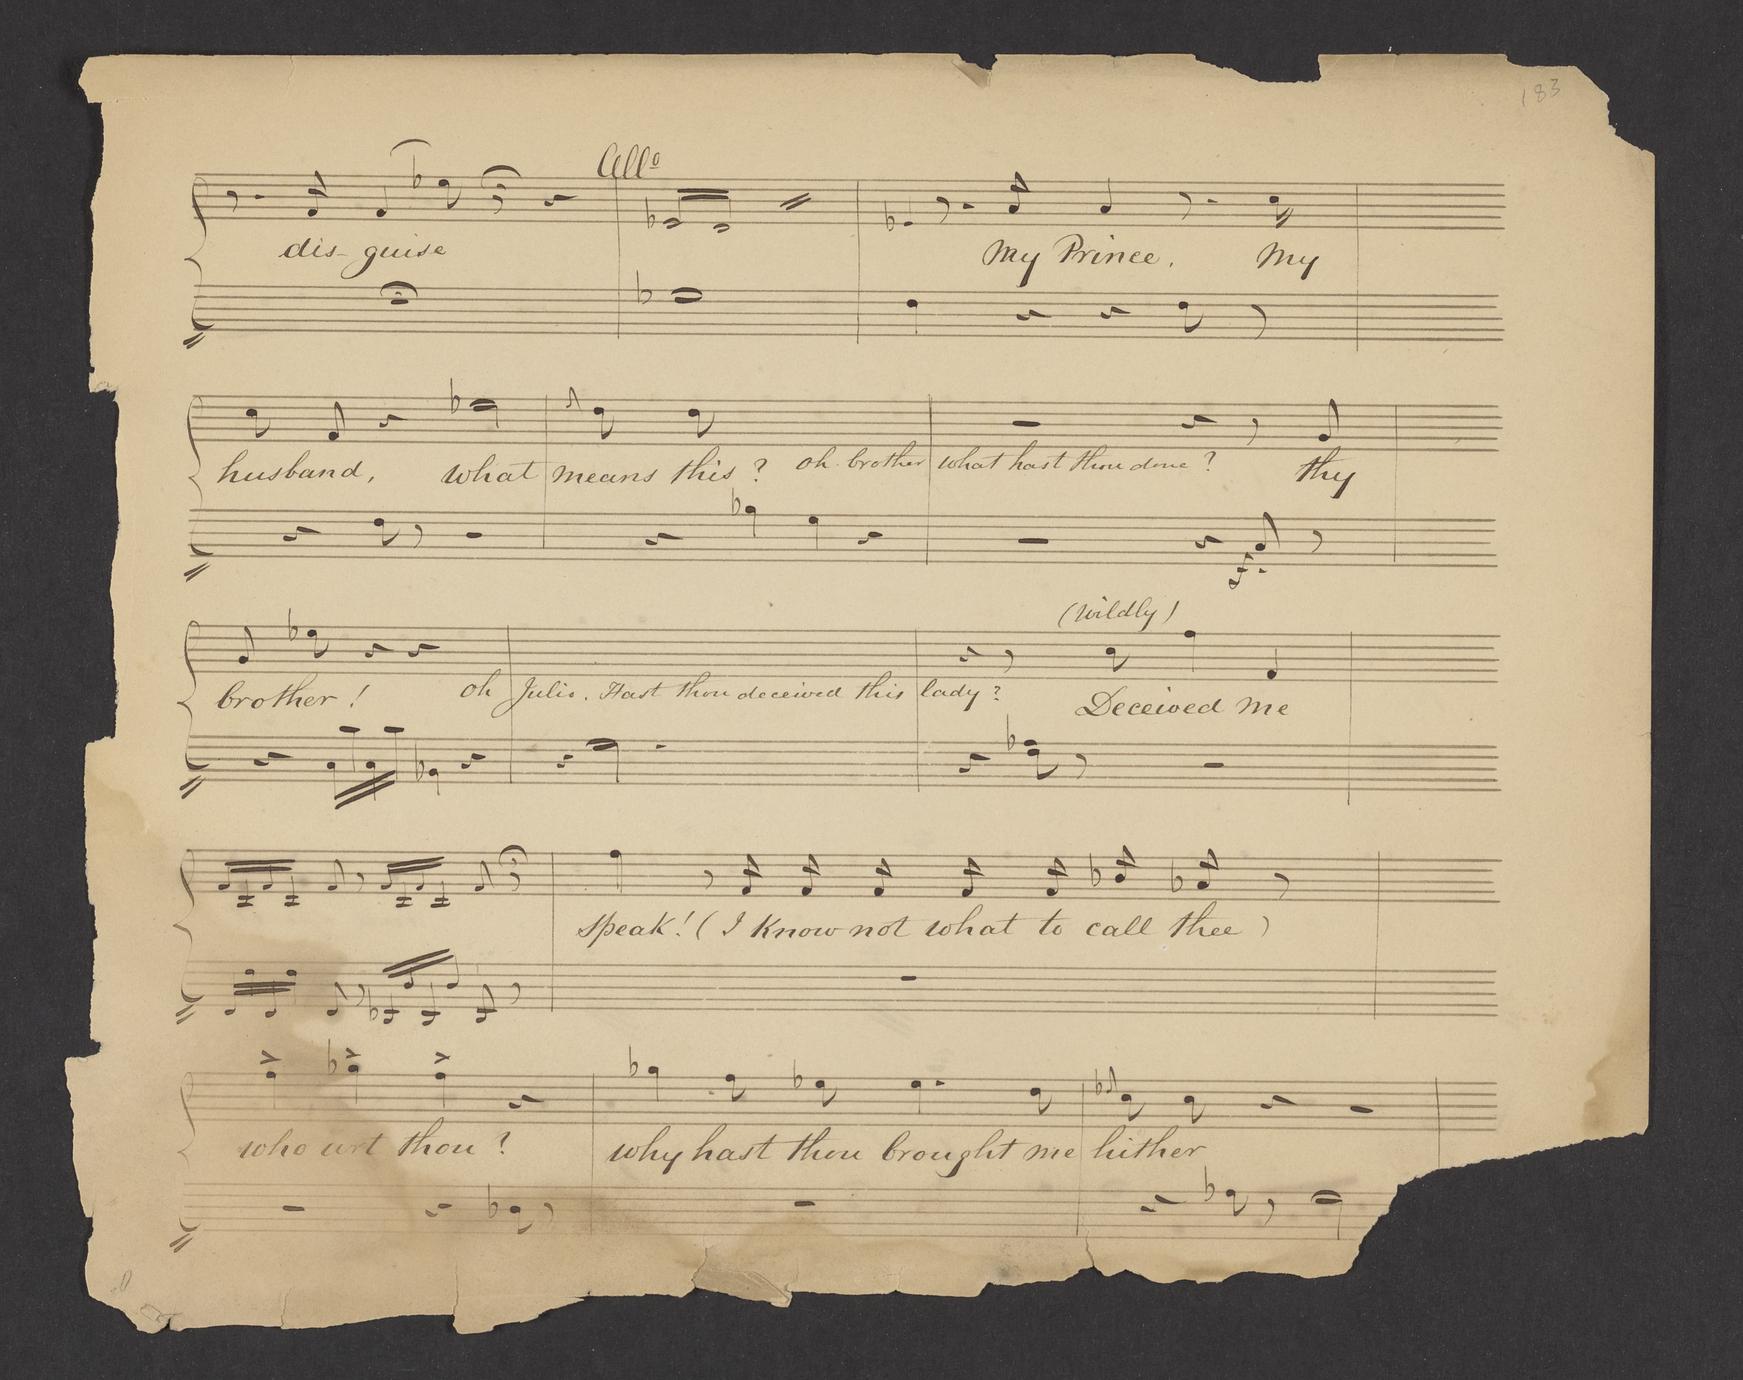 183
Allo
dis-guise My Prince. My
husband, what means this? oh brother what hast thou done? thy
f.
(Wildly)
brother! oh Julio. Hast thou deceived this lady? Deceived Me
speak! (I Know not what to call thee)
who art thou? why hast thou brought me hither